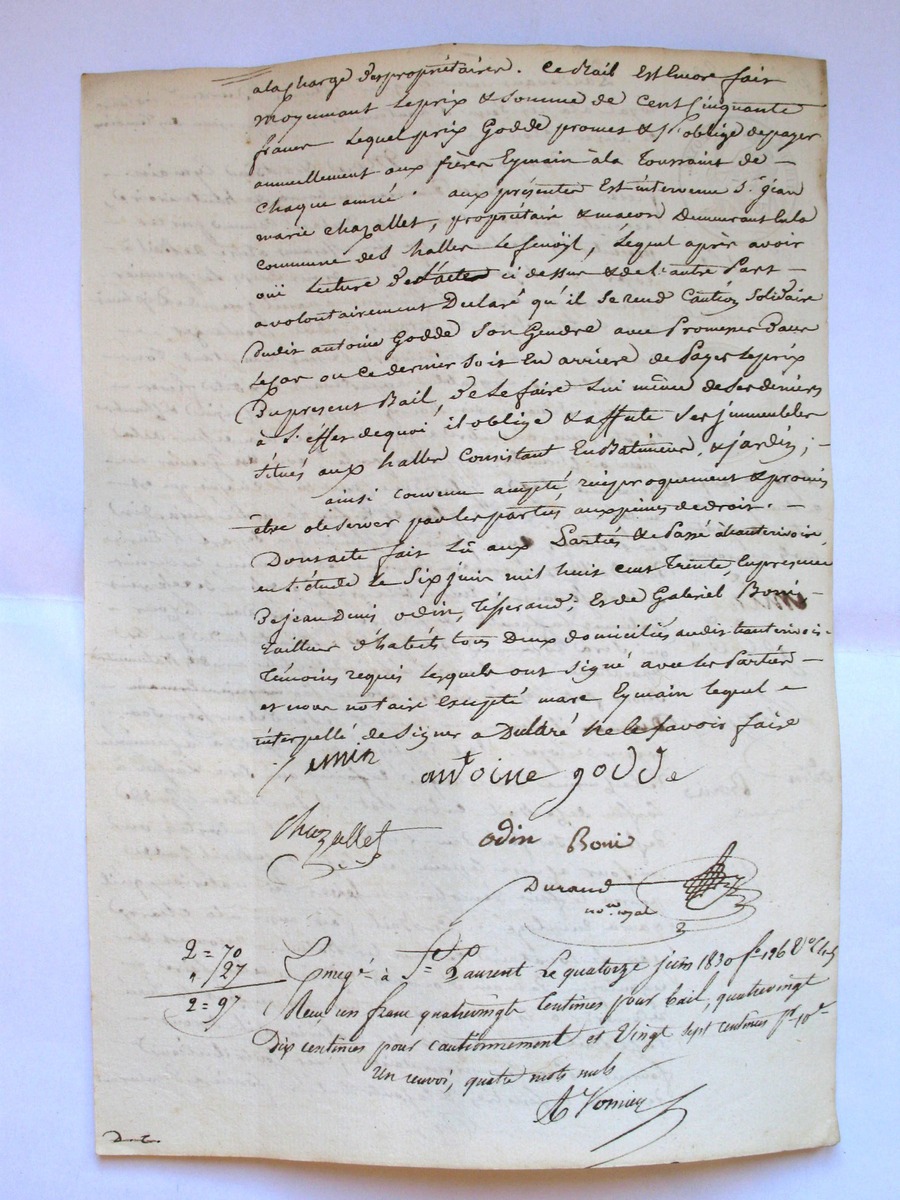 a la charge des propriétaires. Ce Bail Est Encore fait
moyennant le prix & somme de cent Cinquante
francs lequel prix Godde promet & s'oblige de payer
annuellement aux frères Eymain à la Toussaint de –
chaque année. aux présentes Est intervenu Sr. jean
marie chazallet, propriétaire & macon Demeurant En la
commune des halles le fenoyl, lequel après avoir
ouï lecture de l'acte ci dessus & de l'autre Part –
a volontairement Déclaré qu'il se rend Caution Solidaire
dudit antoine Godde Son Gendre avec Promesse Dans
le cas ou ce dernier soit En arriere de Payer le prix
Du present Bail, de le faire Lui même de ses deniers
à L'effet de quoi il oblige & affecte ses immeubles
situés aux halles Consistant En Batiment & jardin ; –
ainsi convenu accepté réciproquement & promis
être observer par les parties aux peines de droit. –
Dont acte fait Lû aux Parties & Passé à hauterivoire,
en l'étude le Six juin mil huit cent Trente, En presence
De jean denis odin, tisserand, Et de Gabriel Boni –
tailleur d'habits tous Deux domiciliés audit hauterivoire.
témoins requis lesquels ont signé avec les Parties –
et nous notaire Excepté marc Eymain lequel –
interpellé de Signer a Déclaré ne le savoir faire
antoine godde
Chazallet odin Boni
Durand
nore. royal
2 = 70
" / 27
2 = 97
Enregé. à St. Laurent le quatorze juin 1830 fo. 126
Reçu un franc quatrevingt Centimes pour bail, quatrevingt
Dix centimes pour cautionnement et Vingt sept centimes pr. 10e
Un renvoi, quatre mots nuls